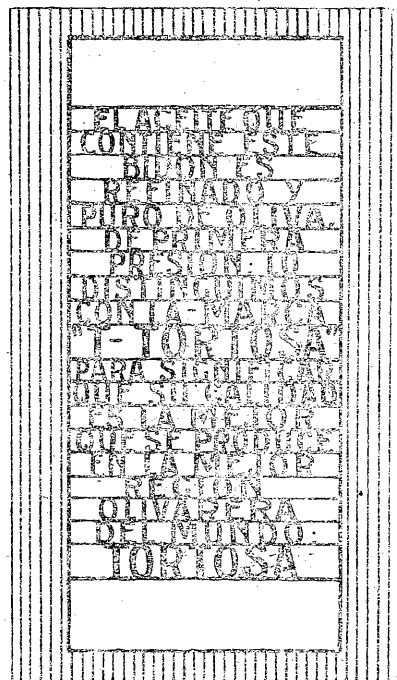 EL ACEITE QUE
CONTIENE ESTE
BIDON ES
REFINADO Y
PURO DE OLIVA,
DE PRIMERA
PRESION. LO
DISTINGUIMOS
CON LA MARCA
"T-TORTOSA"
PARA SIGNIFICAR
QUE SU CALIDAD
ES LA MEJOR
QUE SE PRODUCE
EN LA MEJOR
REGION
OLIVARERA
DEL MUNDO:
TORTOSA